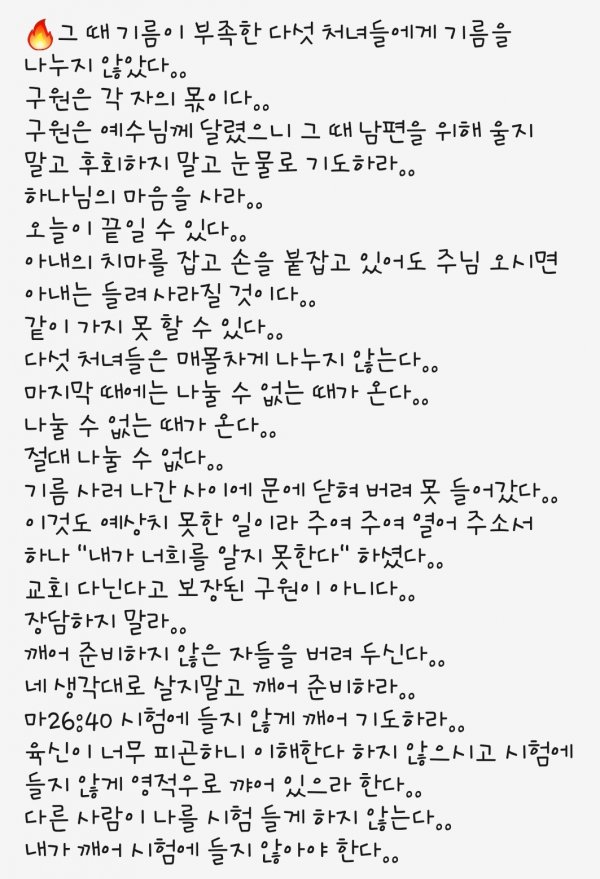 🔥그 때 기름이 부족한 다섯 처녀들에게 기름을
나누지 않았다。。
구원은 각 자의 몫이다。。
구원은 예수님께 달렸으니 그 때 남편을 위해 울지
말고 후회하지 말고 눈물로 기도하라。。
하나님의 마음을 사라。。
오늘이 끝일 수 있다。。
아내의 치마를 잡고 손을 붙잡고 있어도 주님 오시면
아내는 들려 사라질 것이다。。
같이 가지 못 할 수 있다。。
다섯 처녀들은 매몰차게 나누지 않는다。。
마지막 때에는 나눌 수 없는 때가 온다。。
나눌 수 없는 때가 온다。。
절대 나눌 수 없다。。
기름 사러 나간 사이에 문에 닫혀 버려 못 들어갔다。。
이것도 예상치 못한 일이라 주여 주여 열어 주소서
하나 "내가 너희를 알지 못한다" 하셨다。。
교회 다닌다고 보장된 구원이 아니다。。
장담하지 말라。。
깨어 준비하지 않은 자들을 버려 두신다。。
네 생각대로 살지말고 깨어 준비하라。。
마26:40 시험에 들지 않게 깨어 기도하라。。
육신이 너무 피곤하니 이해한다 하지 않으시고 시험에
들지 않게 영적우로 꺠어 있으라 한다。。
다른 사람이 나를 시험 들게 하지 않는다。。
내가 깨어 시험에 들지 않아야 한다。。